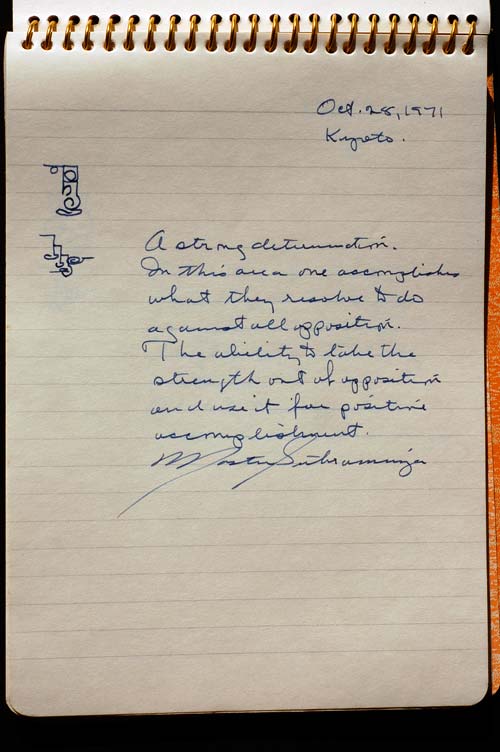 Oct. 28, 1971
Kyoto.
A strong determination.
In this area one accomplishes
what they resolve to do
against all opposition.
The ability to take the
strength out of opposition
and use it for positive
accomplishment.
Master Subramuniya